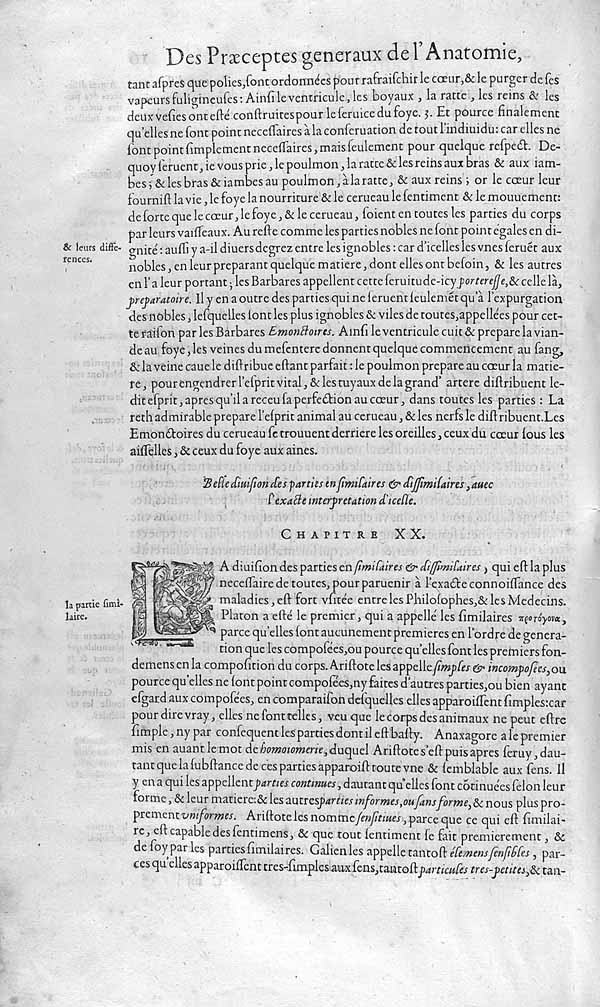 Des Præceptes generaux de l'Anatomie,
tant aſpres que polies, ſont ordonnées pour rafraiſchir le cœur, & le purger de ſes
vapeurs fuligineuſes: Ainſi le ventricule, les boyaux, la ratte, les reins & les
deux veſies ont eſté conſtruites pour le ſeruice du foye. 3. Et pource finalement
qu'elles ne ſont point neceſſaires à la conſeruation de tout l'indiuidu: car elles ne
ſont point ſimplement neceſſaires, mais ſeulement pour quelque reſpect. De-
quoy ſeruent, ie vous prie, le poulmon, la ratte & les reins aux bras & aux iam-
bes; & les bras & iambes au poulmon, à la ratte, & aux reins; or le cœur leur
fourniſt la vie, le foye la nourriture & le cerueau le ſentiment & le mouuement:
de ſorte que le cœur, le foye, & le cerueau, ſoient en toutes les parties du corps
par leurs vaiſſeaux. Au reſte comme les parties nobles ne ſont point égales en di-
& leurs diffe-
rences.
gnité: auſſi y a-il diuers degrez entre les ignobles: car d'icelles les vnes ſeruẽt aux
nobles, en leur preparant quelque matiere, dont elles ont beſoin, & les autres
en l'a leur portant; les Barbares appellent cette ſeruitude-icy portereſſe, & celle là,
preparatoire. Il y en a outre des parties qui ne ſeruent ſeulemẽt qu'à l'expurgation
des nobles, leſquelles ſont les plus ignobles & viles de toutes, appellées pour cet-
te raiſon par les Barbares Emonctoires. Ainſi le ventricule cuit & prepare la vian-
de au foye, les veines du meſentere donnent quelque commencement au ſang,
& la veine caue le diſtribue eſtant parfait: le poulmon prepare au cœur la matie-
re, pour engendrer l'eſprit vital, & les tuyaux de la grand' artere diſtribuent le-
dit eſprit, apres qu'il a receu ſa perfection au cœur, dans toutes les parties: La
reth admirable prepare l'eſprit animal au cerueau, & les nerfs le diſtribuent. Les
Emonctoires du cerueau ſe trouuent derriere les oreilles, ceux du cœur ſous les
aiſſelles, & ceux du foye aux aines.
Belle diuiſion des parties en ſimilaires & diſſimilaires, auec
l'exacte interpretation d'icelle.
CHAPITRE XX.
LA diuiſion des parties en ſimilaires & diſſimilaires, qui eſt la plus
neceſſaire de toutes, pour paruenir à l'exacte connoiſſance des
la partie ſimi-
laire.
maladies, eſt fort vſitée entre les Philoſophes, & les Medecins.
Platon a eſté le premier, qui a appellé les ſimilaires πρωτόγονα,
parce qu'elles ſont aucunement premieres en l'ordre de genera-
tion que les compoſées, ou pource qu'elles ſont les premiers fon-
demens en la compoſition du corps. Ariſtote les appelle ſimples & incompoſées, ou
pource qu'elles ne ſont point compoſées, ny faites d'autres parties, ou bien ayant
eſgard aux compoſées, en comparaiſon deſquelles elles apparoiſſent ſimples: car
pour dire vray, elles ne ſont telles, veu que le corps des animaux ne peut eſtre
ſimple, ny par conſequent les parties dont il eſt baſty. Anaxagore a le premier
mis en auant le mot de homoiomerie, duquel Ariſtote s'eſt puis apres ſeruy, dau-
tant que la ſubſtance de ces parties apparoiſt toute vne & ſemblable aux ſens. Il
y en a qui les appellent parties continues, dautant qu'elles ſont cõtinuées ſelon leur
forme, & leur matiere: & les autres parties informes, ou ſans forme, & nous plus pro-
prement vniformes. Ariſtote les nomme ſenſitiues, parce que ce qui eſt ſimilai-
re, eſt capable des ſentimens, & que tout ſentiment ſe fait premierement, &
de ſoy par les parties ſimilaires. Galien les appelle tantoſt élemens ſenſibles, par-
ces qu'elles apparoiſſent tres-ſimples aux ſens, tantoſt particules tres-petites, & tan-